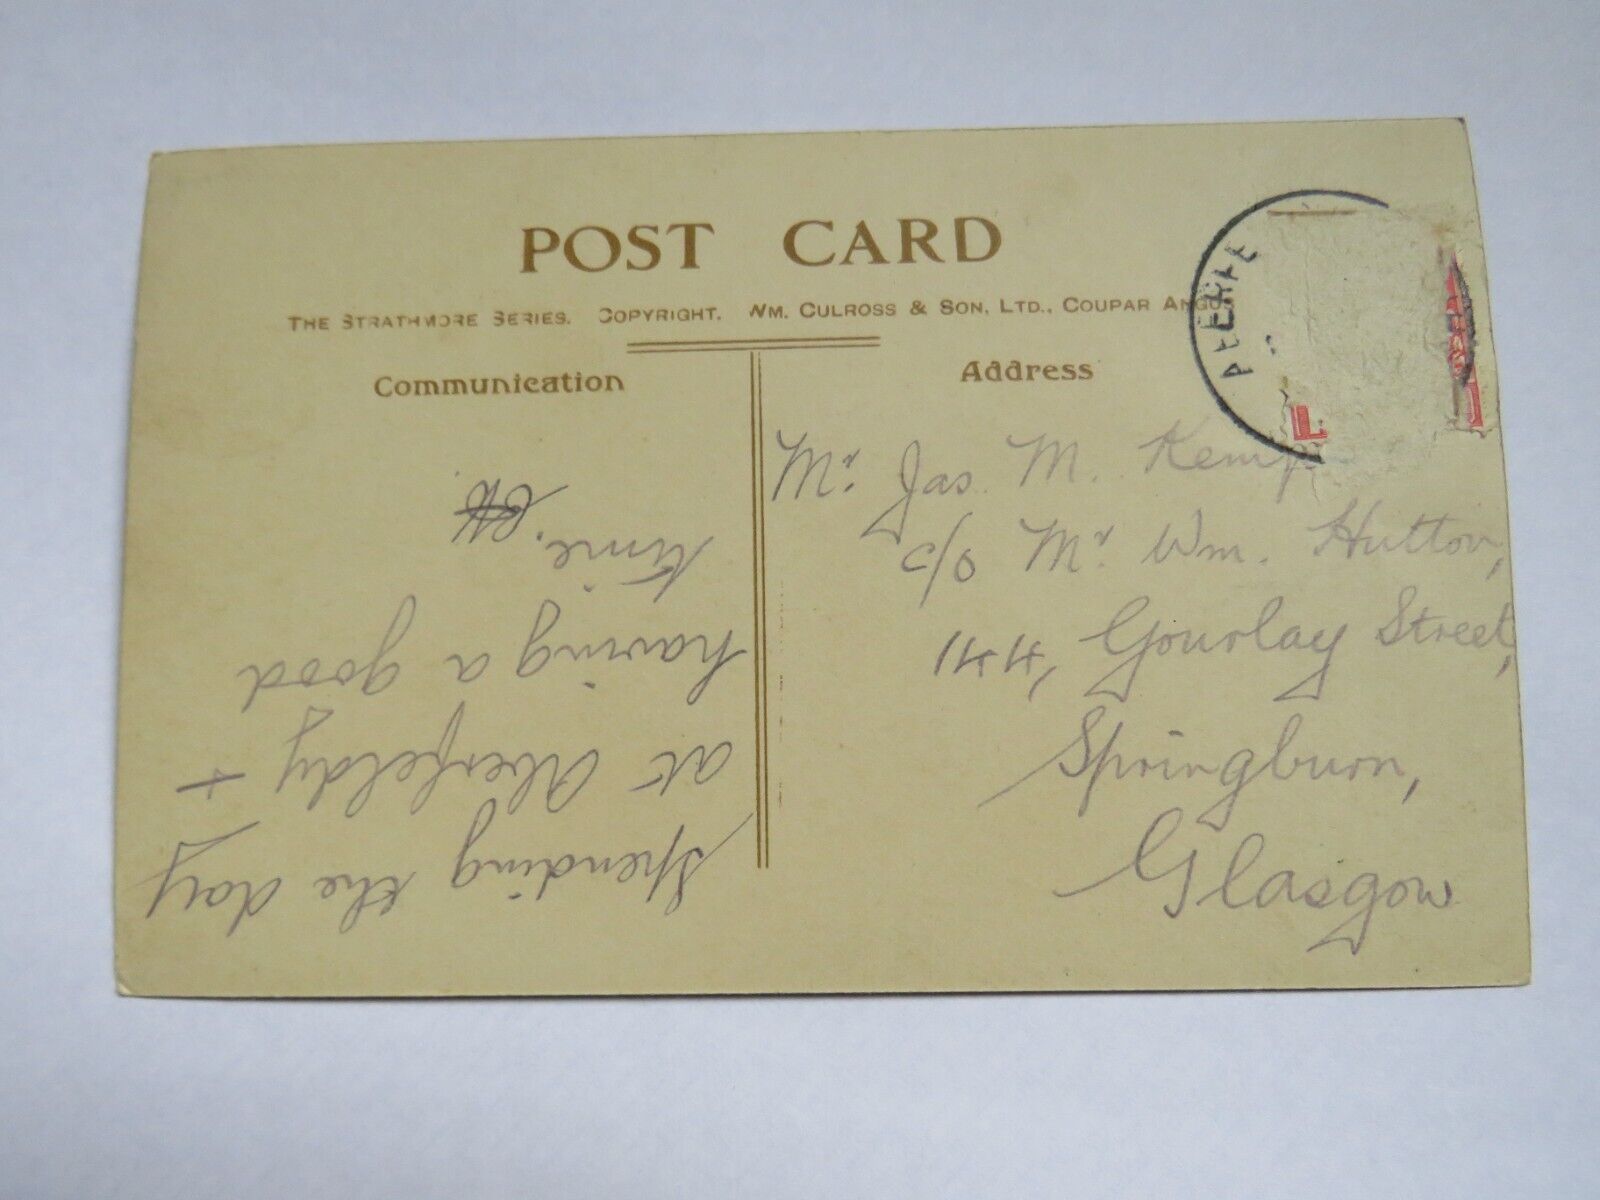 POST CARD
THE STRATHMORE SERIES. COPYRIGHT. WM. CULROSS & SON, LTD., COUPAR ANGUS
Communication
Address
Mr. Jas. M. Kemp
c/o Mr Wm. Hutton,
144, Gourlay Street,
Springburn,
Glasgow
Spending the day
at Aberfeldy +
having a good
time.